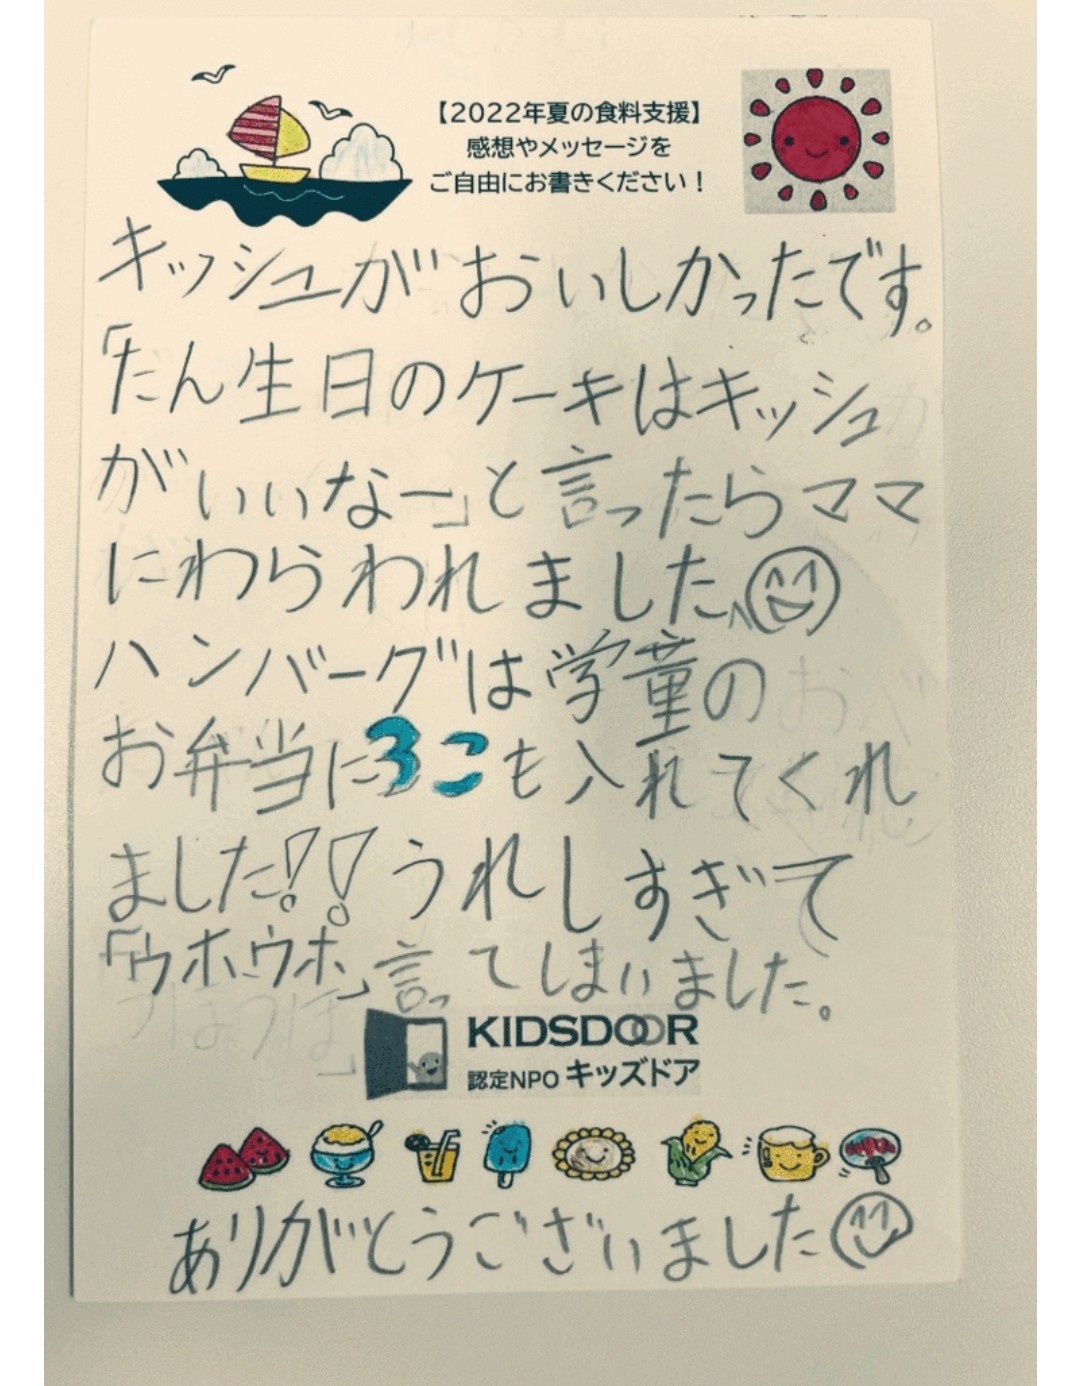 【2022年夏の食料支援】
感想やメッセージを
ご自由にお書きください！
キッシュがおいしかったです。
「たん生日のケーキはキッシュ
がいいなー」と言ったらママ
にわらわれました
ハンバーグは学童の
お弁当に3こも入れてくれ
ました!!うれしすぎて
「ウホウホ」言ってしまいました。
KIDSDOOR
認定NPO キッズドア
ありがとうございました